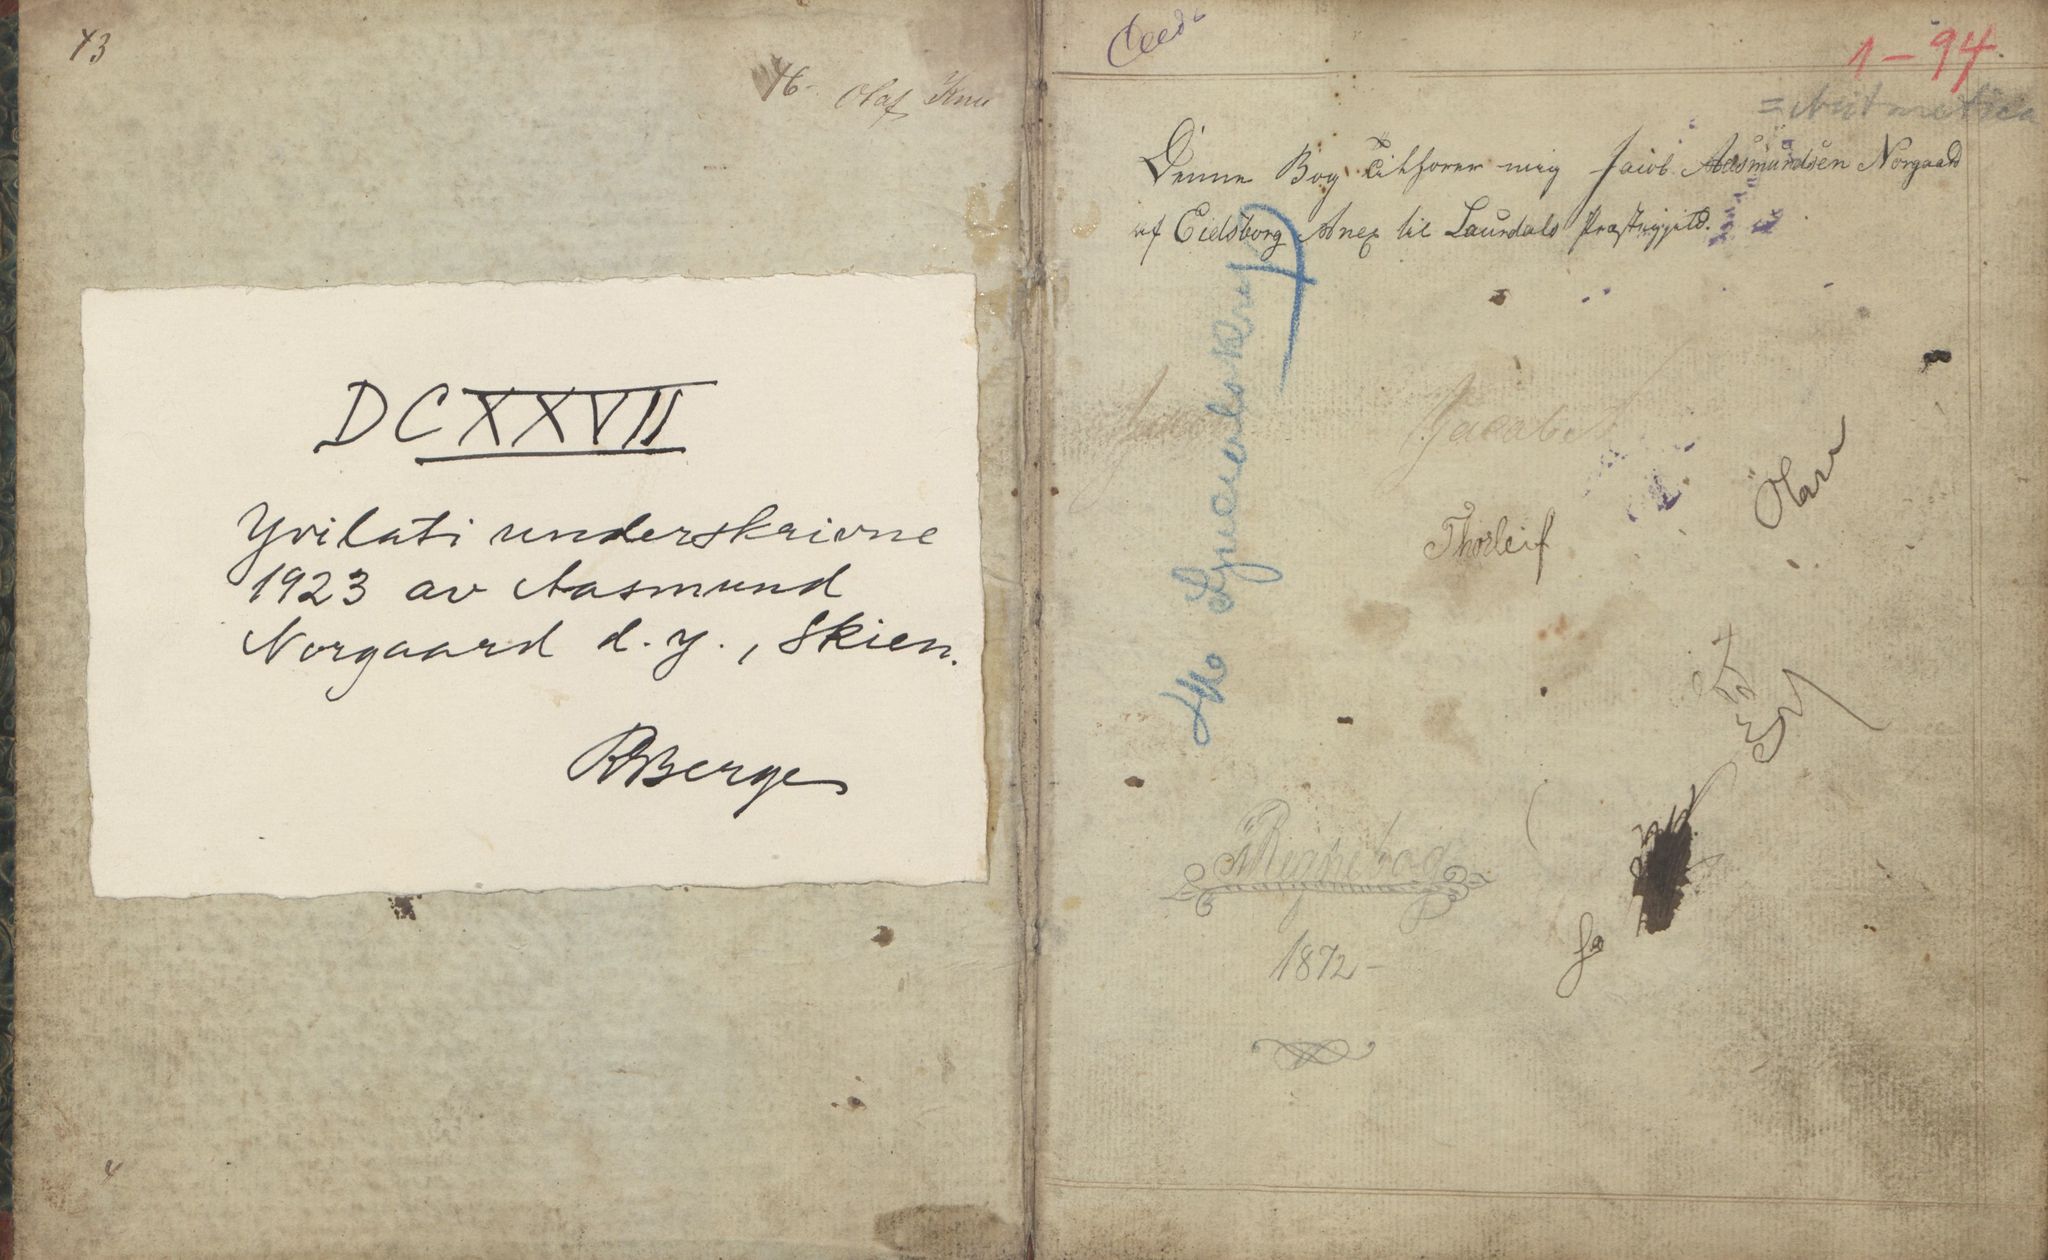 43
46-
Olaf Knu
DCXXVII
Yvilati underskrivne
1923 av Aasmund
Norgaard d. y., Skien.
RBerge
1-94.
= Aritmetica
Denne Bog tilhører mig Jacob Aasmundsen Norgaard
af Eidsborg Anex til Laurdals Præstegjeld.
Jacob
Thorleif
Olav
Regnebog
1872-